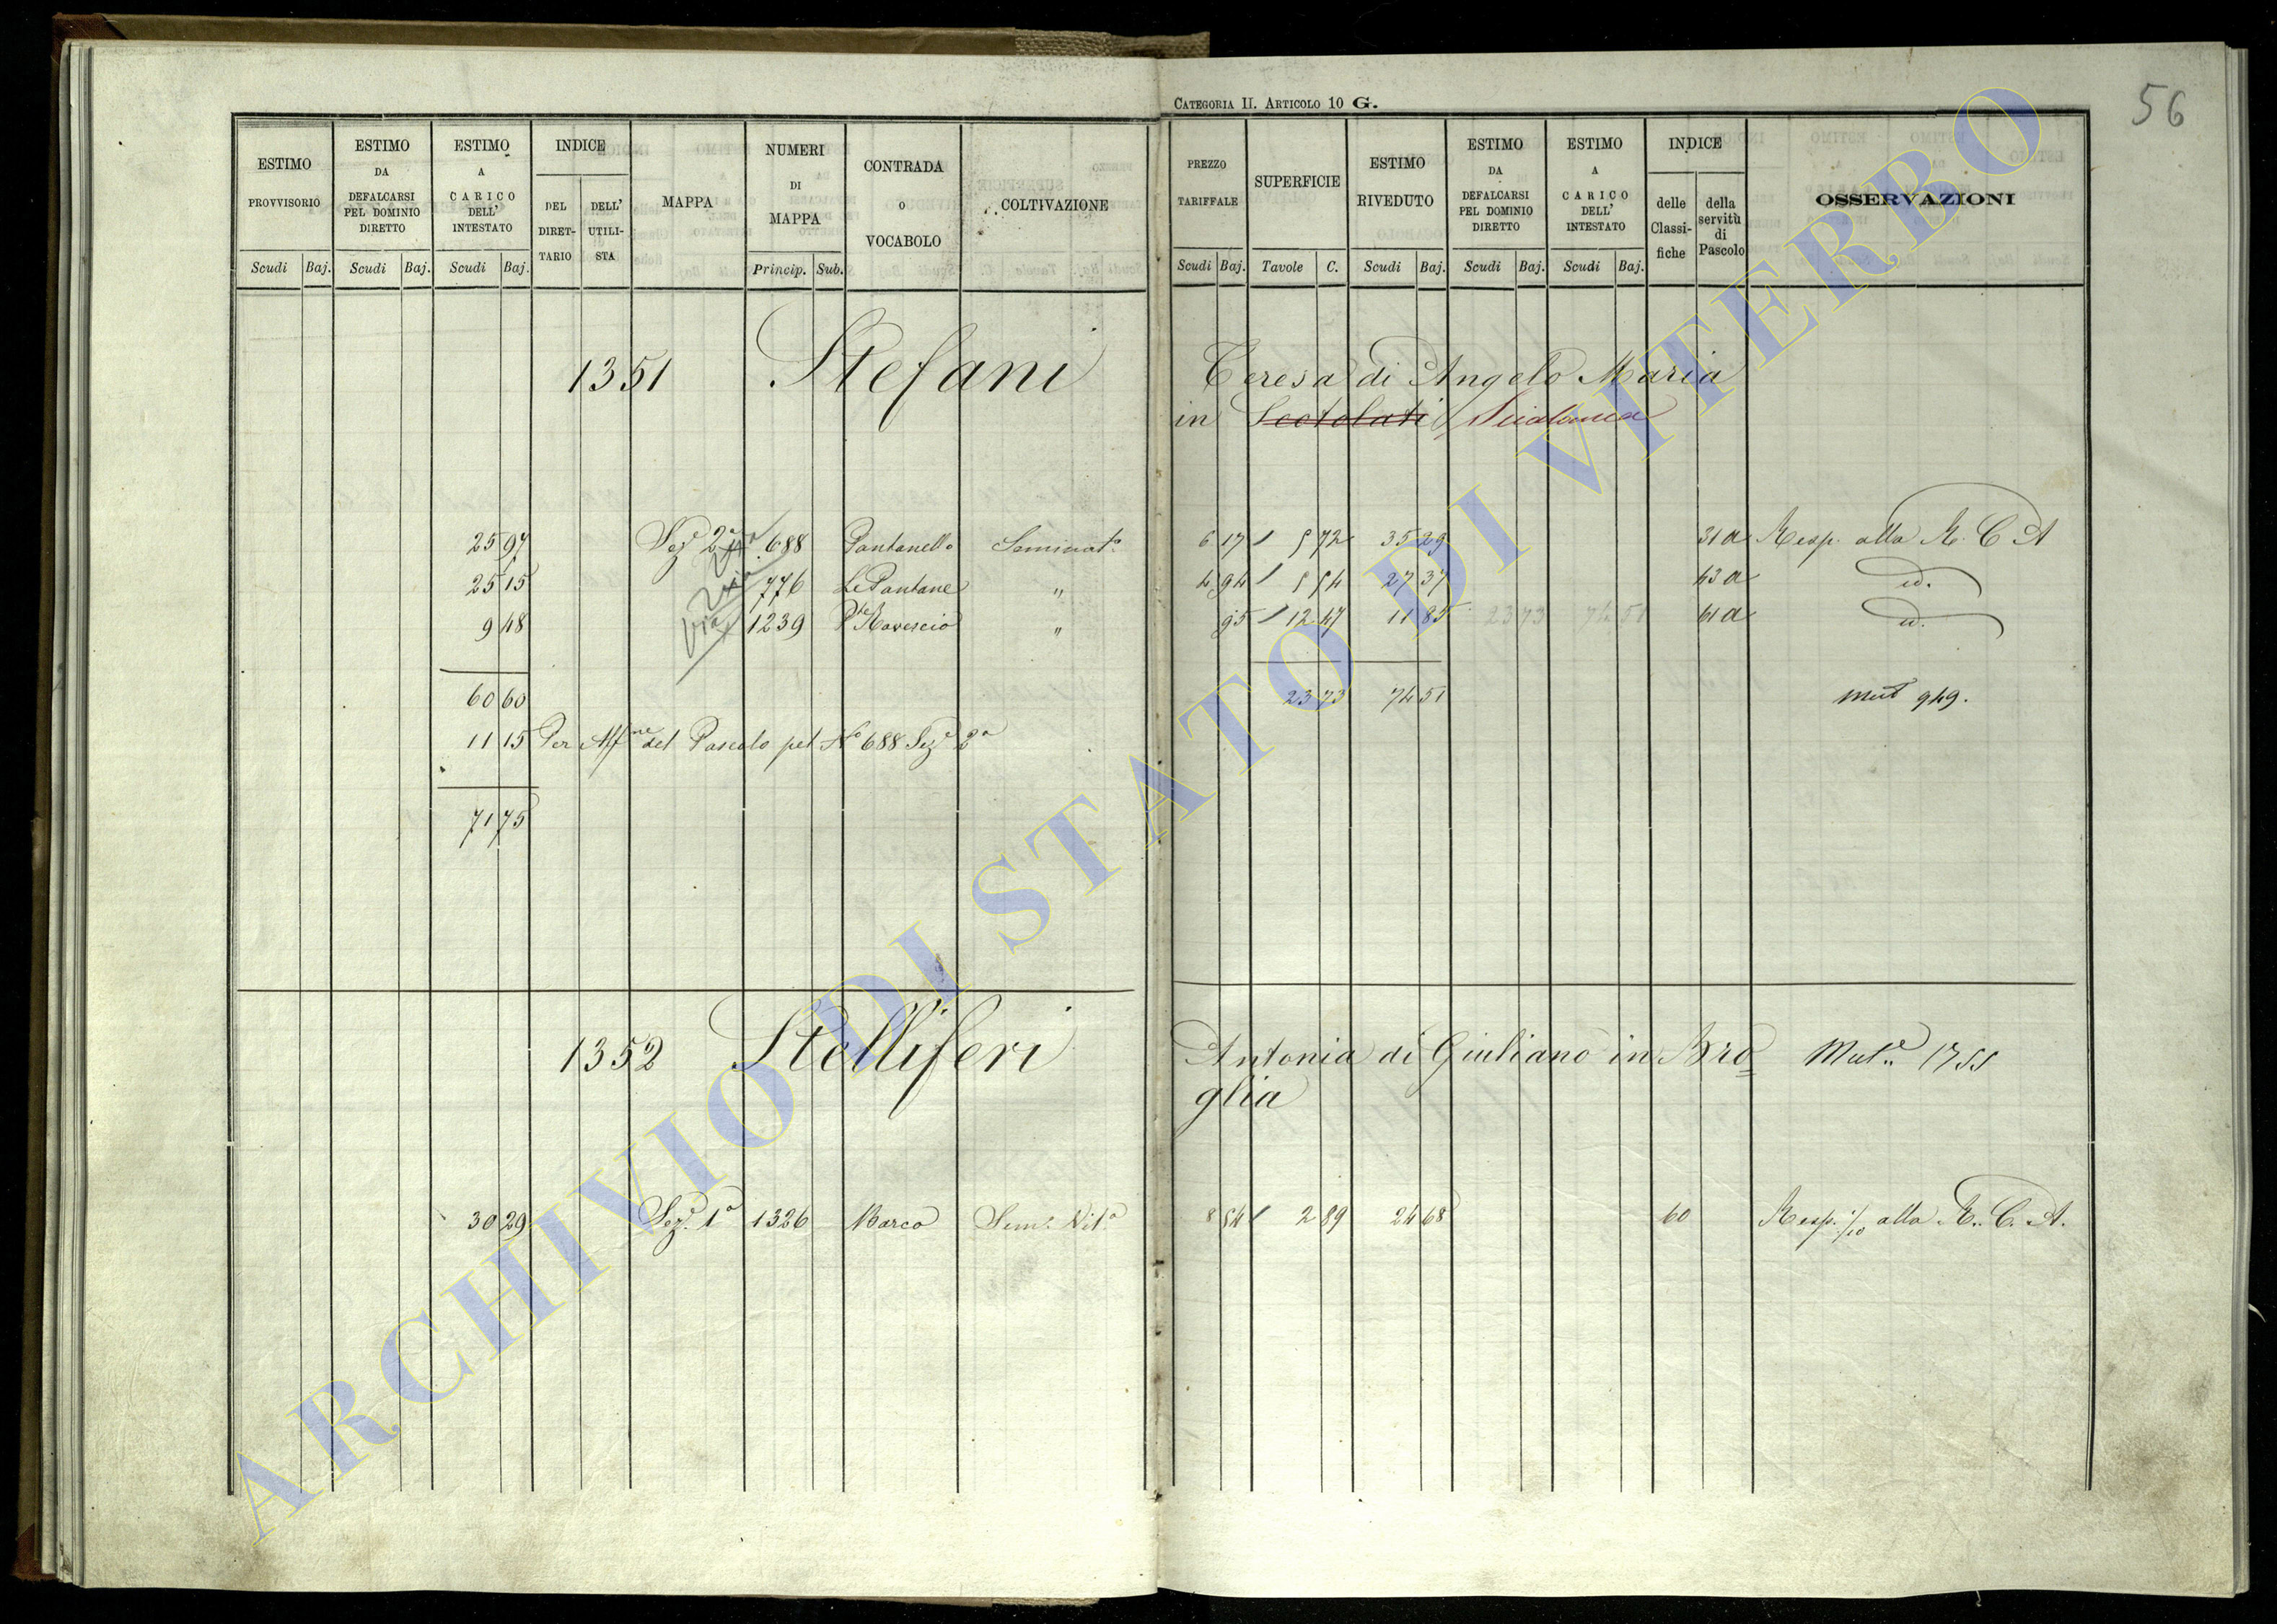 CATEGORIA II. ARTICOLO 10 G.
56
ESTIMO PROVVISORIO Scudi Baj.
ESTIMO DA DEFALCARSI PEL DOMINIO DIRETTO Scudi Baj.
ESTIMO A CARICO DELL' INTESTATO Scudi Baj.
INDICE DEL DIRET-TARIO DELL' UTILI-STA
MAPPA
NUMERI DI MAPPA Princip. Sub.
CONTRADA O VOCABOLO
COLTIVAZIONE
PREZZO TARIFFALE Scudi Baj.
SUPERFICIE Tavole C.
ESTIMO RIVEDUTO Scudi Baj.
ESTIMO DA DEFALCARSI PEL DOMINIO DIRETTO Scudi Baj.
ESTIMO A CARICO DELL' INTESTATO Scudi Baj.
INDICE delle Classi-fiche della servitù di Pascolo
OSSERVAZIONI
1351 Stefani Teresa di Angelo Maria
in Scotolati
25 97 Sez.e 2a 688 Pantanello Seminat.o 6 17 5 72 35 29 31 a Resp. alla R. C. A
25 15 776 Le Pantane " 4 94 5 54 27 37 43 a id.
9 48 1239 " 95 12 47 11 85 23 73 74 51 61 a id.
60 60 23 73 74 51 Mut 949.
11 15 Per del Pascolo pel No 688 Sez.e 2a
71 75
1352 Stelliferi Antonia di Giuliano in Bro= Mut.e 1755
glia
30 29 Sez.e 1a 1326 Barco Sem.o Vit.o 8 54 2 89 24 68 60 Resp. 1/10 alla R. C. A.
ARCHIVIO DI STATO DI VITERBO